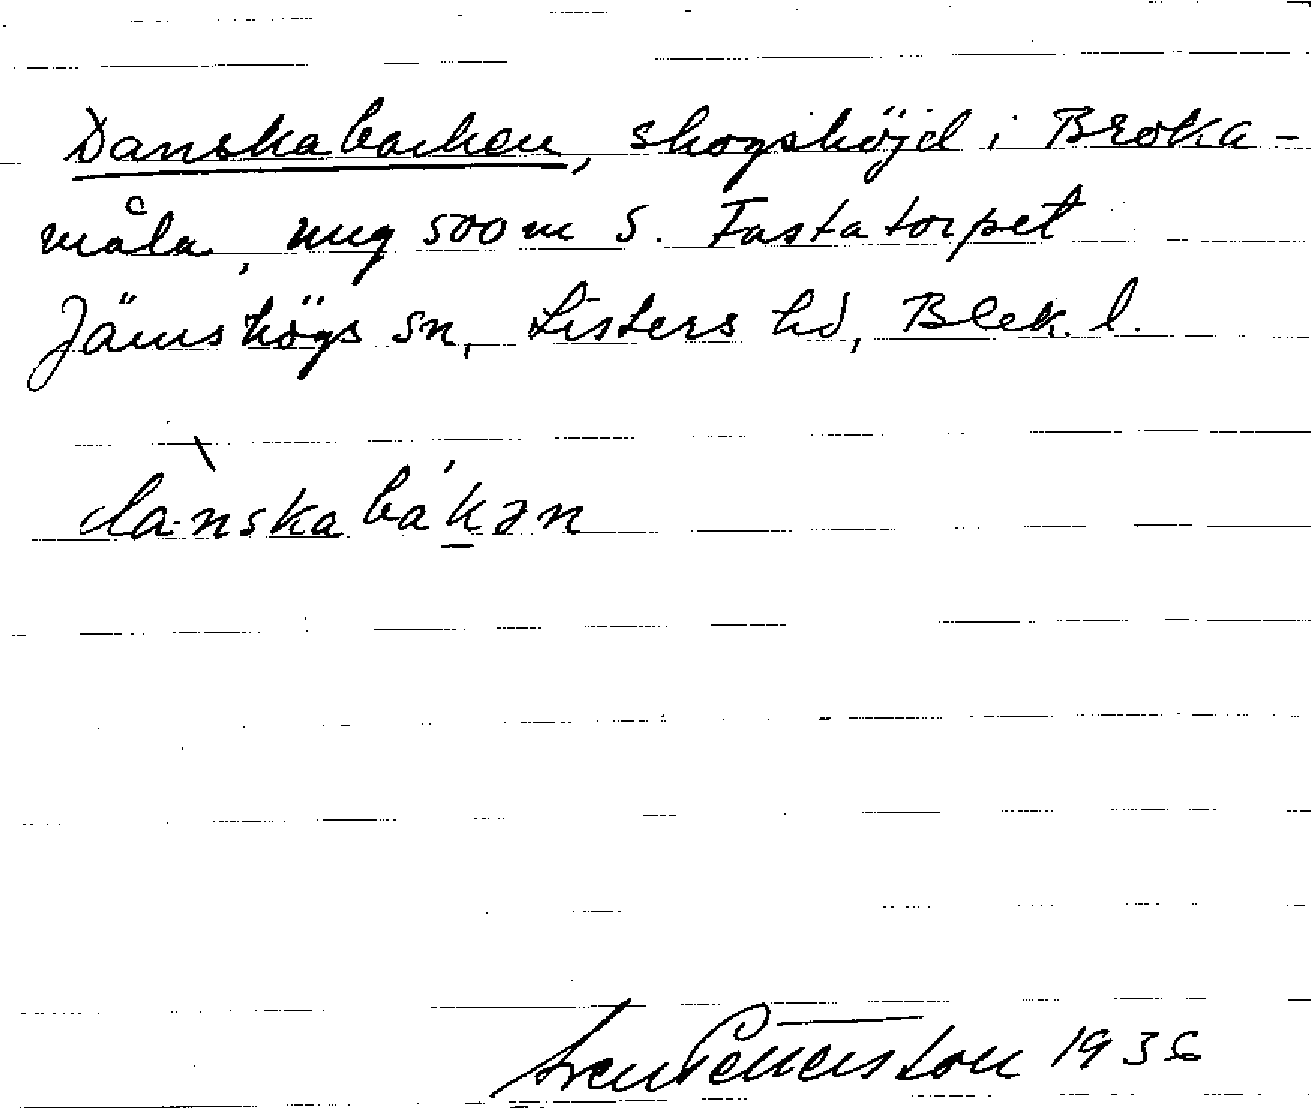 Danskabacken, skogshöjd i Broka-
måla, ung 500 m S. Fastatorpet
Jämshögs sn, Listers hd, Blek. l.
dànskabákən
Sven Petterston 1936